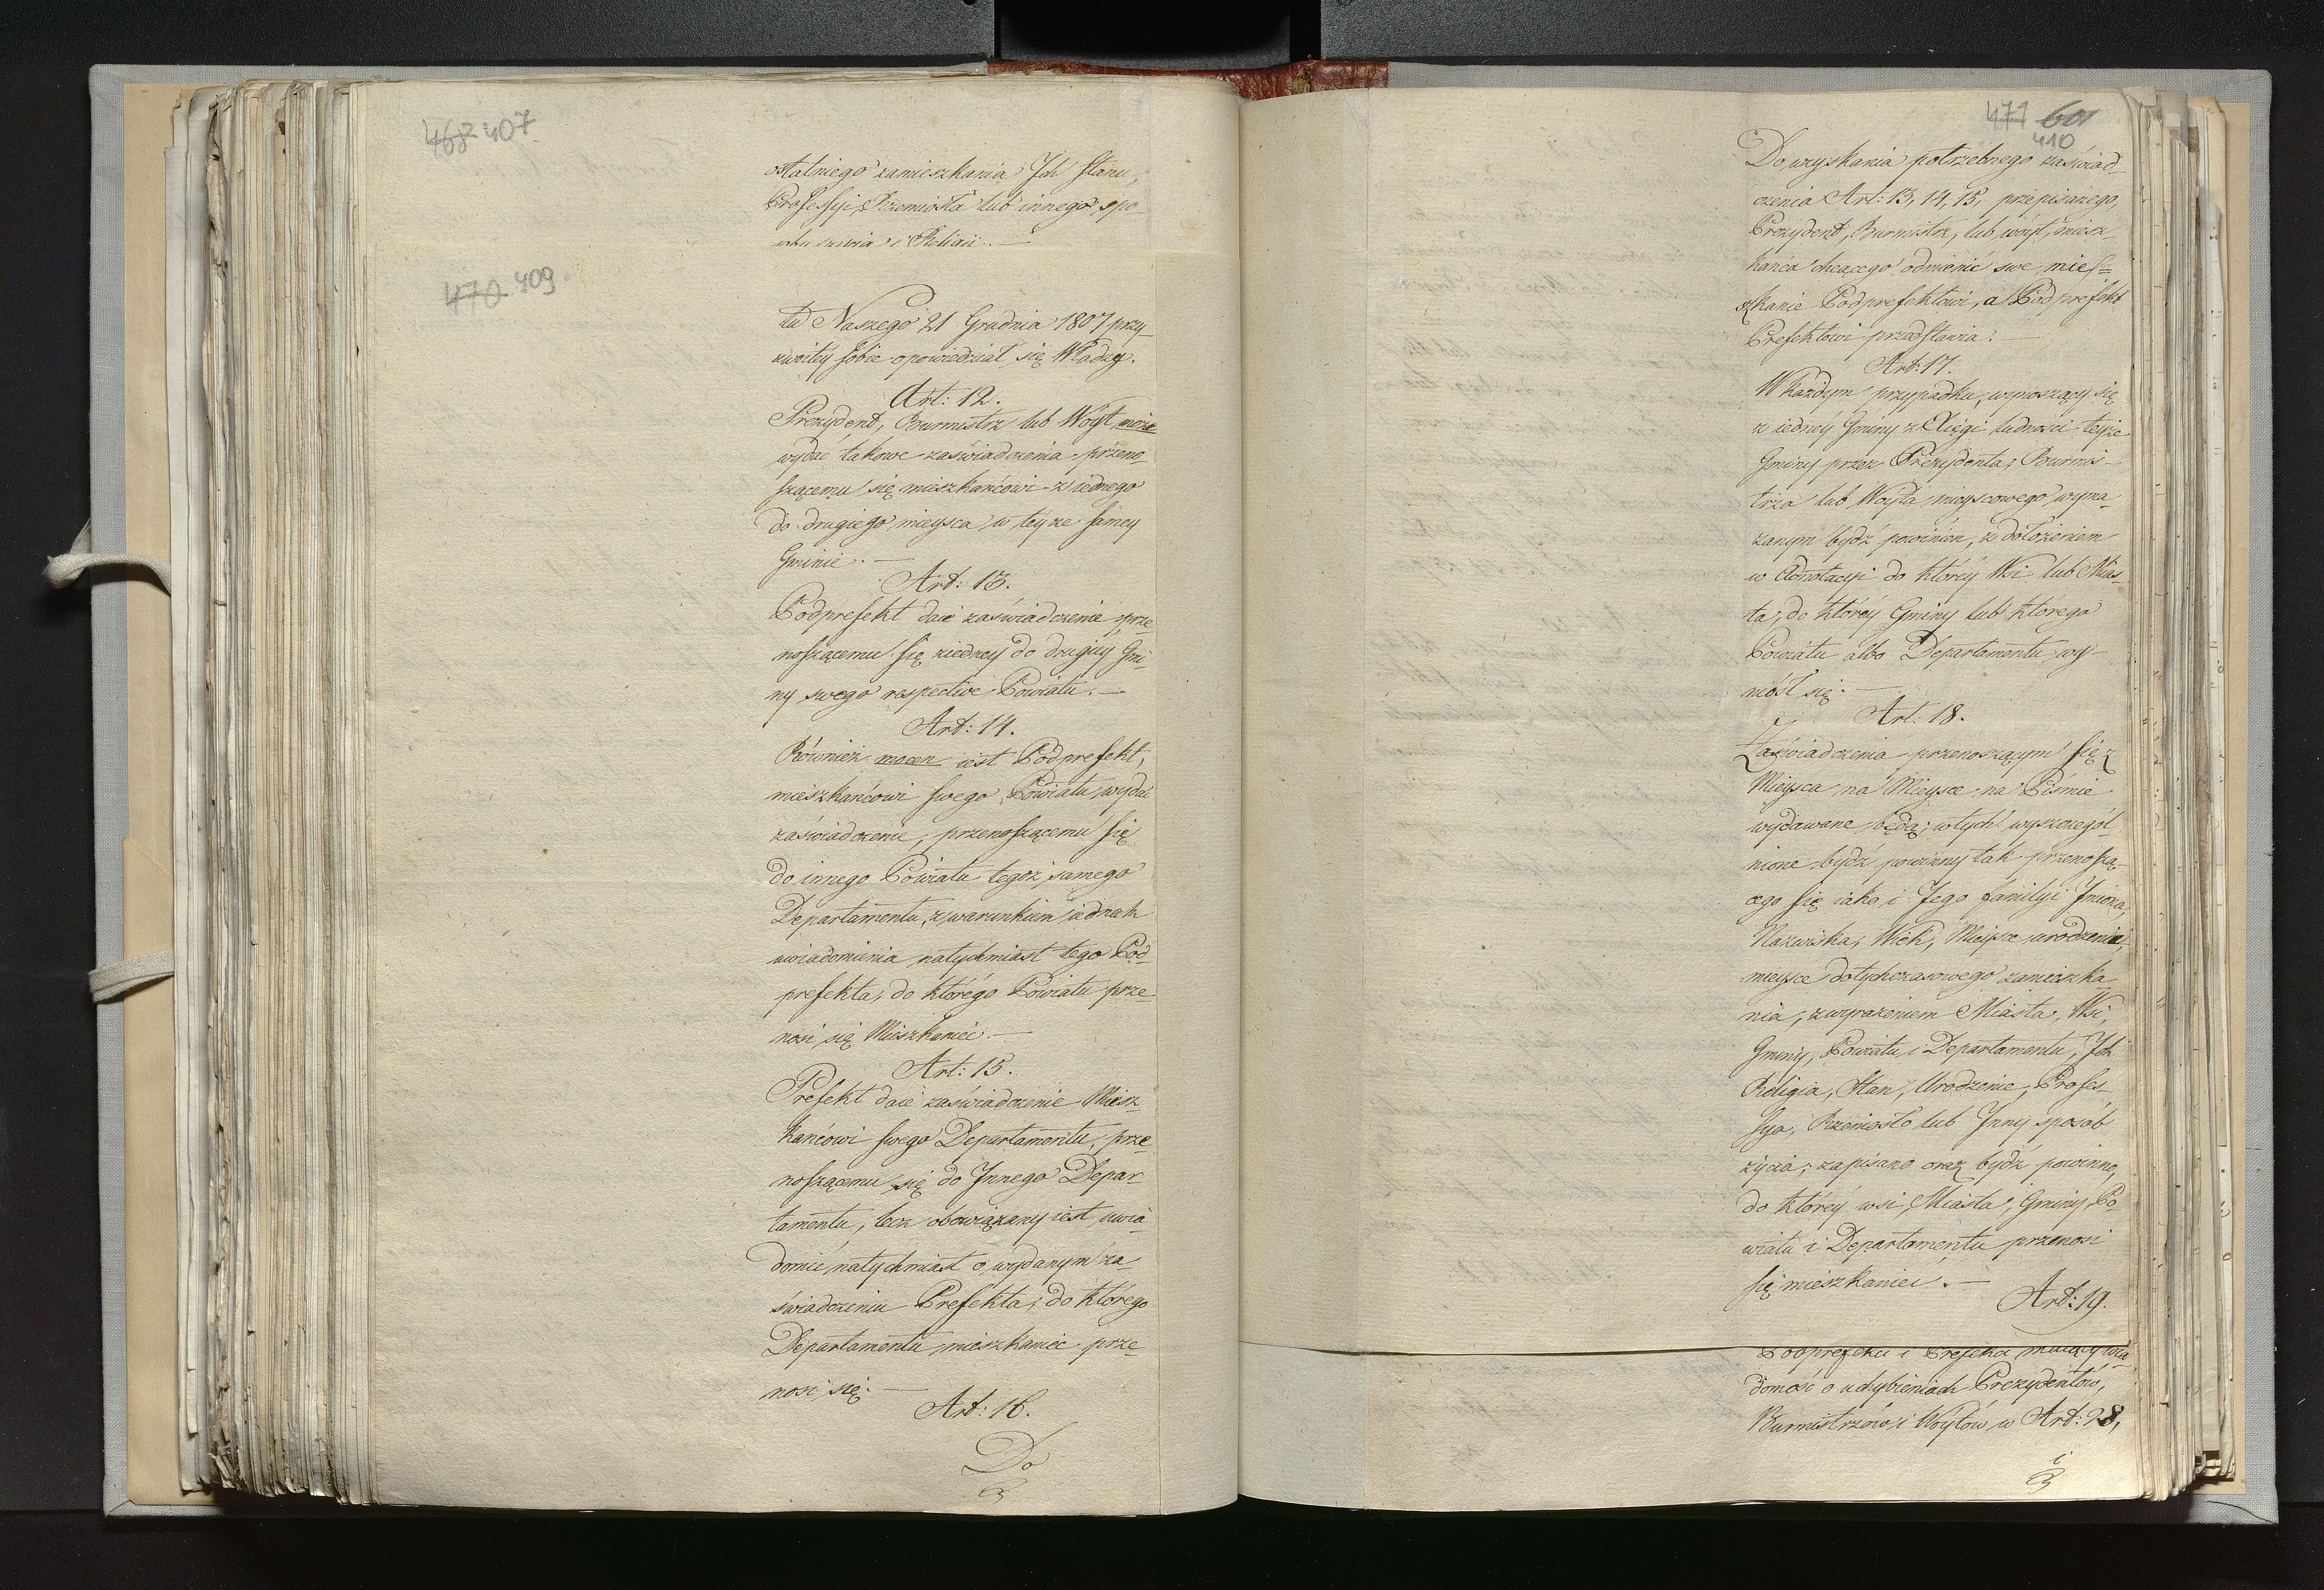 468 407
ostatniego zamieszkania Ich stanu,
Professyi, Rzemiosła lub innego spo-
sobu życia i Religii. —
470 409
tu Naszego 21 Grudnia 1807 przy-
zwoitey sobie opowiedział się Władzy.
Art: 12.
Prezydent, Burmistrz lub Woyt może
wydać takowe zaświadczenia przeno-
szącemu się mieszkańcowi z iednego
do drugiego mieysca w teyże samey
Gminie. —
Art: 13.
Podprefekt daie zaświadczenie prze-
noszącemu się ziedney do drugiey Gmi-
ny swego respective Powiatu. —
Art: 14.
Również mocen iest Podprefekt,
mieszkańcowi swego Powiatu wydać
zaświadczenie, przenoszącemu się
do innego Powiatu tegoż samego
Departamentu, z warunkiem iednak
uwiadomienia natychmiast tego Pod-
prefekta, do którego Powiatu prze-
nosi się Mieszkaniec. —
Art: 15.
Prefekt daie zaświadczenie Miesz-
kańcowi swego Departamentu, prze-
noszącemu się do Innego Depar-
tamentu, lecz obowiązany iest uwia-
domić natychmiast o wydanym za-
świadczeniu Prefekta, do którego
Departamentu mieszkaniec prze-
nosi się. —
Art: 16.
Do
471 601
410
Do uzyskania potrzebnego zaświad-
czenia Art: 13, 14, 15, przepisanego,
Prezydent, Burmistrz, lub woyt, miesz-
kańca chcącego odmienić swe mies-
szkanie Podprefektowi, a Podprefekt
Prefektowi przedstawia. —
Art: 17.
W każdym przypadku, wynoszący się
z iedney Gminy z Xięgi ludności teyże
Gminy przez Prezydenta, Burmis-
trza lub Woyta mieyscowego wyma-
zanym bydź powinien, z dołożeniem
w Adnotacyi do którey Wsi lub Mias-
ta, do którey Gminy lub ktorego
Powiatu albo Departamentu wy-
niosł się. —
Art: 18.
Zaświadczenia przenoszącym się z
Mieysca na Mieysce na Piśmie
wydawane będą; w tych wyszczegól-
nione bydź powinny tak przenoszą-
cego się iako i Jego familyi Imiona,
Nazwiska, Wiek, Mieysce urodzenia,
mieysce dotychczasowego zamieszka-
nia, z wyrażeniem Miasta, Wsi,
Gminy, Powiatu i Departamentu, Ich
Religia, Stan, Urodzenie, Profes-
sya, Rzemiosło lub Inny sposób
życia; zapisano oraz bydź powinno,
do którey wsi, Miasta, Gminy, Po-
wiatu i Departamentu przenosi
się mieszkaniec. —
Art: 19.
Podprefekci i Prefekci maiący wia-
domość o uchybieniach Prezydentów,
Burmistrzów i Woytów w Art: 28,
i